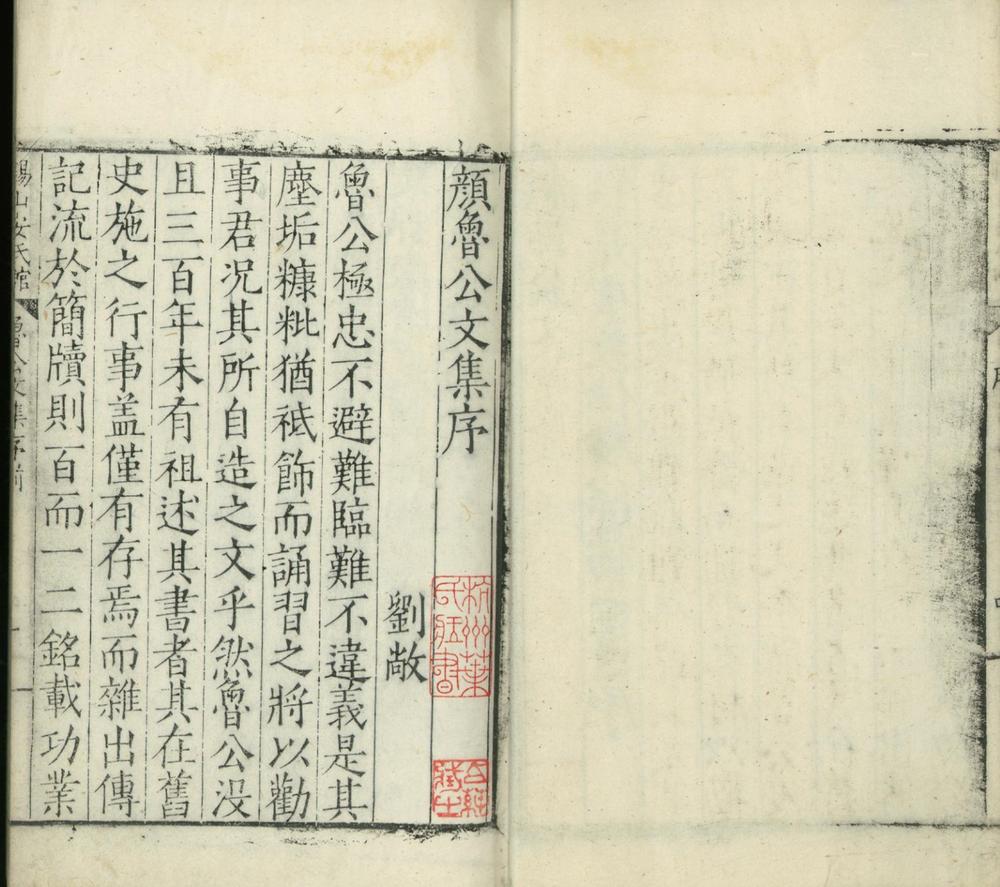 顔魯公文集序
劉敞
魯公極忠不避難臨難不違義是其
塵垢糠粃猶祗飾而誦習之將以勸
事君况其所自造之文乎然魯公没
且三百年未有祖述其書者其在舊
史施之行事盖僅有存焉而雜出傳
記流於簡牘則百而一二銘載功業
錫山安氏館
魯公文集序前
杭州葉氏藏書